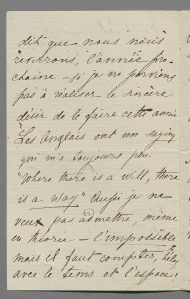 dit que nous nous
reverrons, l'année pro-
chaine – si je ne parviens
pas à réaliser le sincère
désir de le faire cette année
"Les Anglais ont un saying
qui m'a toujours plu.
"Where there is a will, there
is a way." Aussi je ne
veux pas admettre, même
en théorie – l'impossible
mais il faut compter,
avec le tems et l'espace.